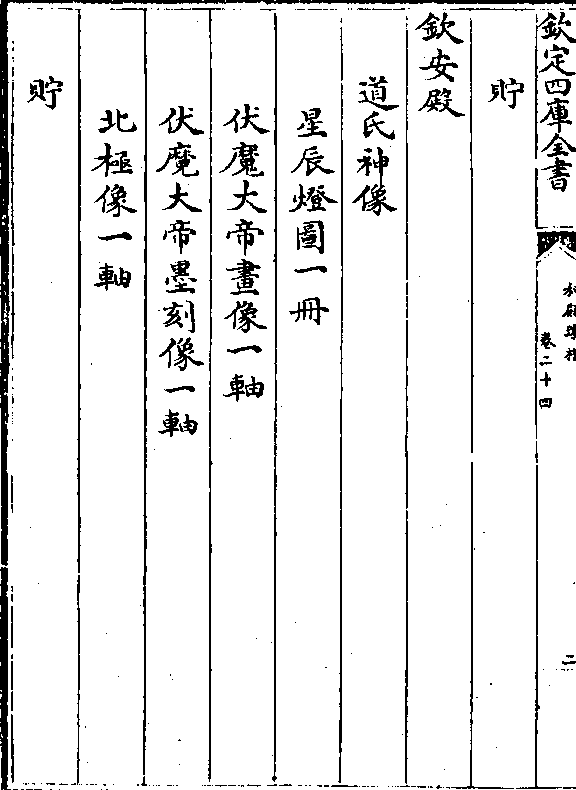 欽定四庫全書
卷二十四
二
貯
欽安殿
道氏神像
星辰燈圖一冊
伏魔大帝畫像一軸
伏魔大帝墨刻像一軸
北極像一軸
貯